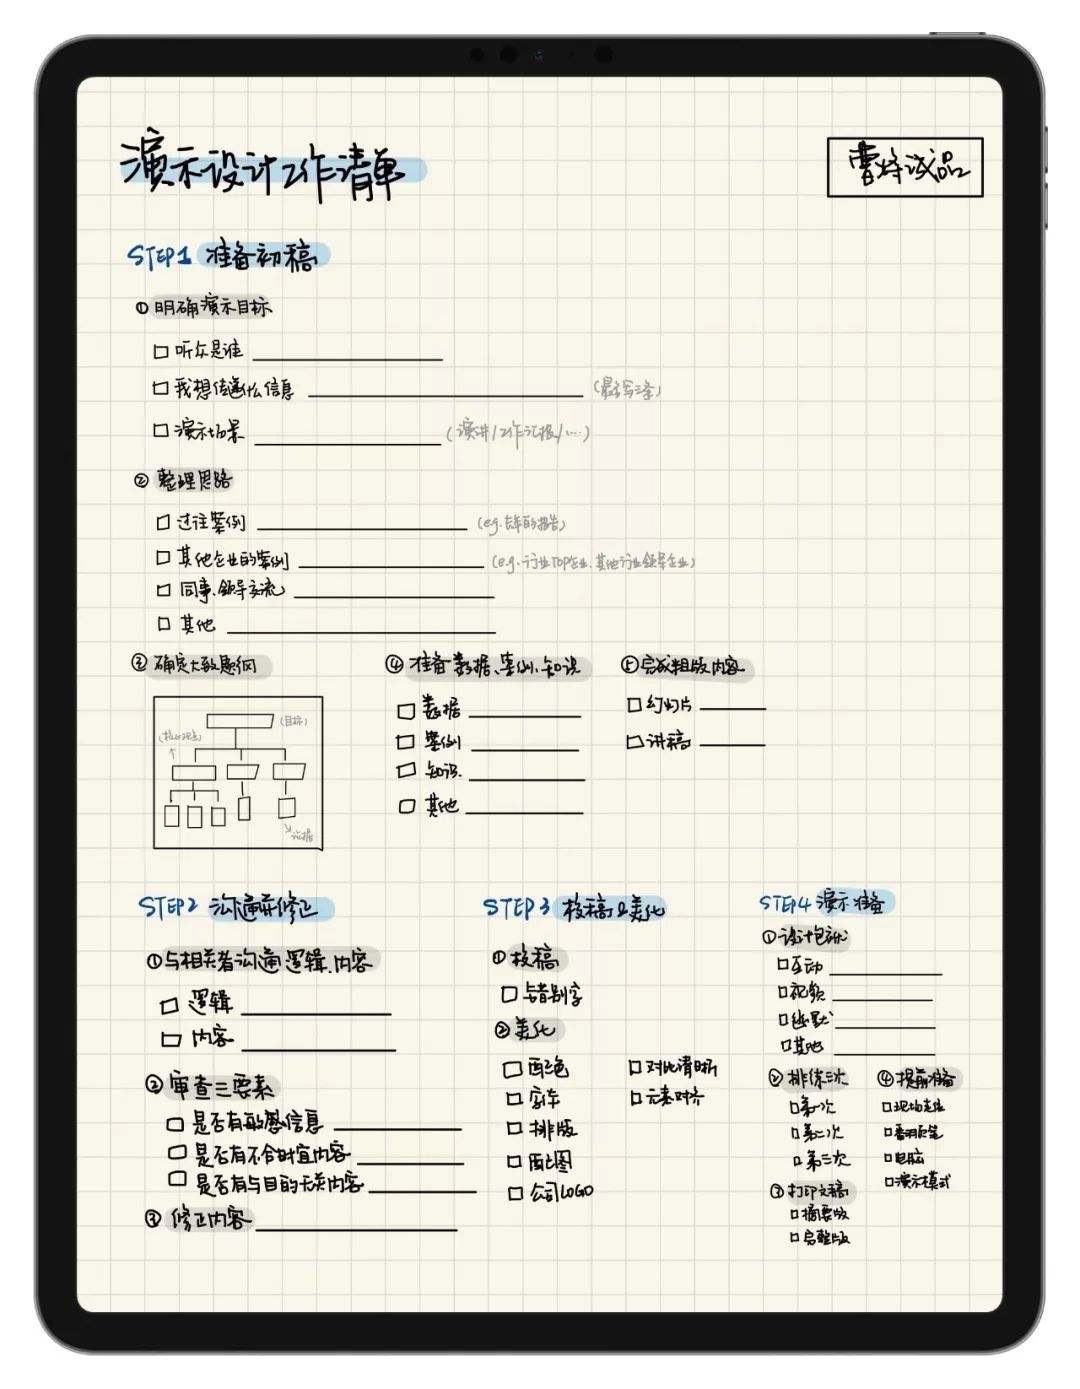 演示设计工作清单
曹将诚品
STEP1 准备初稿
① 明确演示目标
□ 听众是谁
□ 我想传递什么信息 (最多写三条)
□ 演示场景 (演讲/工作汇报/…)
② 整理思路
□ 过往案例 (eg.去年的报告)
□ 其他企业的案例 (e.g.行业TOP企业.其他行业领导企业)
□ 同事、领导交流
□ 其他
③ 确定大致提纲
(目标)
(核心观点)
论据
④ 准备数据、案例、知识
□ 数据
□ 案例
□ 知识
□ 其他
⑤ 完成粗版内容
□ 幻灯片
□ 讲稿
STEP2 沟通并修正
① 与相关者沟通逻辑、内容
□ 逻辑
□ 内容
② 审查三要素
□ 是否有敏感信息
□ 是否有不合时宜内容
□ 是否有与目的无关内容
③ 修正内容
STEP3 校稿及美化
① 校稿
□ 错别字
② 美化
□ 配色
□ 字体
□ 排版
□ 配图
□ 公司LOGO
□ 对比清晰
□ 元素对齐
STEP4 演示准备
① 设计包袱
□ 互动
□ 视频
□ 幽默
□ 其他
② 排练三次
□ 第一次
□ 第二次
□ 第三次
③ 打印文稿
□ 摘要版
□ 完整版
④ 提前准备
□ 现场走位
□ 翻页笔
□ 电脑
□ 演示模式